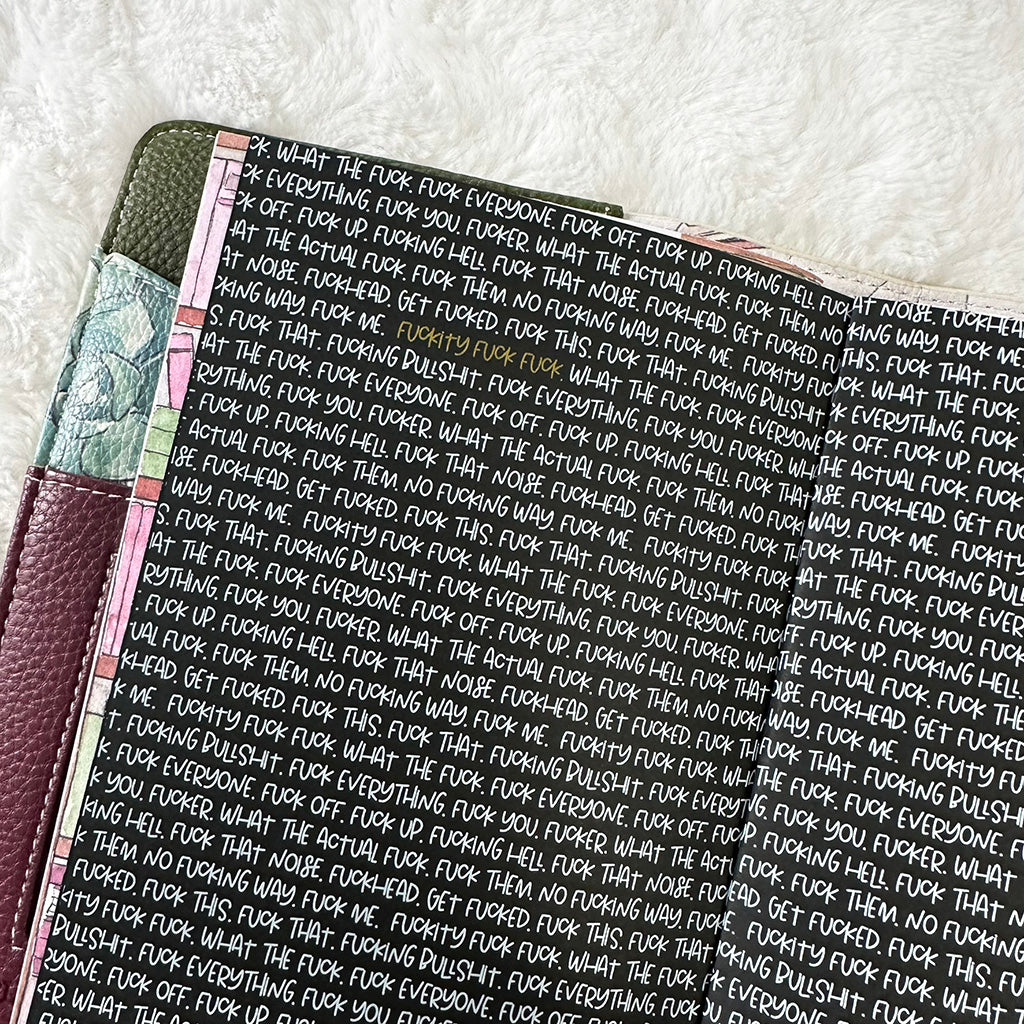 CK. WHAT THE FUCK. FUCK EVERYONE. FUCK OFF. FUCK UP. FUCKING HELL FUC
CK EVERYTHING, FUCK YOU, FUCKER. WHAT THE ACTUAL FUCK. FUCK THEM NO
CK OFF. FUCK UP. FUCKING HELL. FUCK THAT NOISE. FUCKHEAD. GET FUCKED F
HAT THE ACTUAL FUCK. FUCK THEM. NO FUCKING WAY, FUCK ME. FUCKITY FU
AT NOISE. FUCKHEAD. GET FUCKED. FUCK THIS. FUCK THAT. FUCKING BULLSHIT.
KING WAY, FUCK ME. FUCKITY FUCK FUCK. WHAT THE FUCK. FUCK EVERYON
S. FUCK THAT. FUCKING BULLSHIT. FUCK EVERYTHING, FUCK YOU, FUCKER. WH
AT THE FUCK. FUCK EVERYONE. FUCK OFF. FUCK UP. FUCKING HELL FUCK THAT
RYTHING, FUCK YOU, FUCKER. WHAT THE ACTUAL FUCK. FUCK THEM. NO FUCK
FUCK UP. FUCKING HELL. FUCK THAT NOISE. FUCKHEAD. GET FUCKED FUCK TH
ACTUAL FUCK. FUCK THEM. NO FUCKING WAY, FUCK ME. FUCKITY FUCK FUCK
ISE. FUCKHEAD. GET FUCKED FUCK THIS. FUCK THAT. FUCKING BULLSHIT. FUC
WAY, FUCK ME. FUCKITY FUCK FUCK. WHAT THE FUCK. FUCK EVERYONE. FUC
S. FUCK THAT. FUCKING BULLSHIT. FUCK EVERYTHING, FUCK YOU, FUCKER. WHA
AT THE FUCK. FUCK EVERYONE. FUCK OFF. FUCK UP. FUCKING HELL. FUCK THAT
RYTHING, FUCK YOU, FUCKER. WHAT THE ACTUAL FUCK. FUCK THEM. NO FUCKI
. FUCK UP. FUCKING HELL. FUCK THAT NOISE. FUCKHEAD. GET FUCKED. FUCK THI
UAL FUCK. FUCK THEM. NO FUCKING WAY, FUCK ME. FUCKITY FUCK FUCK. WH
KHEAD. GET FUCKED. FUCK THIS. FUCK THAT. FUCKING BULLSHIT. FUCK EVERYT
K ME. FUCKITY FUCK FUCK. WHAT THE FUCK. FUCK EVERYONE. FUCK OFF. FUC
T. FUCKING BULLSHIT. FUCK EVERYTHING, FUCK YOU, FUCKER. WHAT THE ACTU
K. FUCK EVERYONE. FUCK OFF. FUCK UP. FUCKING HELL FUCK THAT NOISE. FUC
K YOU, FUCKER. WHAT THE ACTUAL FUCK. FUCK THEM. NO FUCKING WAY, FUC
KING HELL. FUCK THAT NOISE. FUCKHEAD. GET FUCKED. FUCK THIS. FUCK THAT
K THEM. NO FUCKING WAY, FUCK ME. FUCKITY FUCK FUCK. WHAT THE FUCK. F
FUCKED. FUCK THIS. FUCK THAT. FUCKING BULLSHIT. FUCK EVERYTHING, FUC
KITY FUCK FUCK. WHAT THE FUCK. FUCK EVERYONE. FUCK OFF. FUC
BULLSHIT. FUCK EVERYTHING, FUCK YOU, FUCKER
YONE. FUCK OFF. FUCK UP
ER. WHAT THE A
AT NOISE. FUCKHEA
KING WAY, FUCK ME
THIS. FUCK THAT. FUC
CK. WHAT THE FUCK.
K EVERYTHING, FUCK
CK OFF. FUCK UP. FUC
THE ACTUAL FUCK. FU
ISE. FUCKHEAD. GET FU
WAY, FUCK ME. FUCKITY
FUCK THAT. FUCKING BUL
AT THE FUCK. FUCK EVER
RYTHING, FUCK YOU, FUCK
FF. FUCK UP. FUCKING HELL.
HE ACTUAL FUCK. FUCK TH
ISE. FUCKHEAD. GET FUCKED
WAY, FUCK ME. FUCKITY FU
FUCK THAT. FUCKING BULLSHI
THE FUCK. FUCK EVERYONE. F
G, FUCK YOU, FUCKER. WHAT
P. FUCKING HELL. FUCK THAT N
FUCK. FUCK THEM. NO FUCKING
EAD. GET FUCKED. FUCK THIS. FU
FUCKITY FUCK FUCK. WH
CKING BULLSHIT. FUC
K EVERYONE. FUC